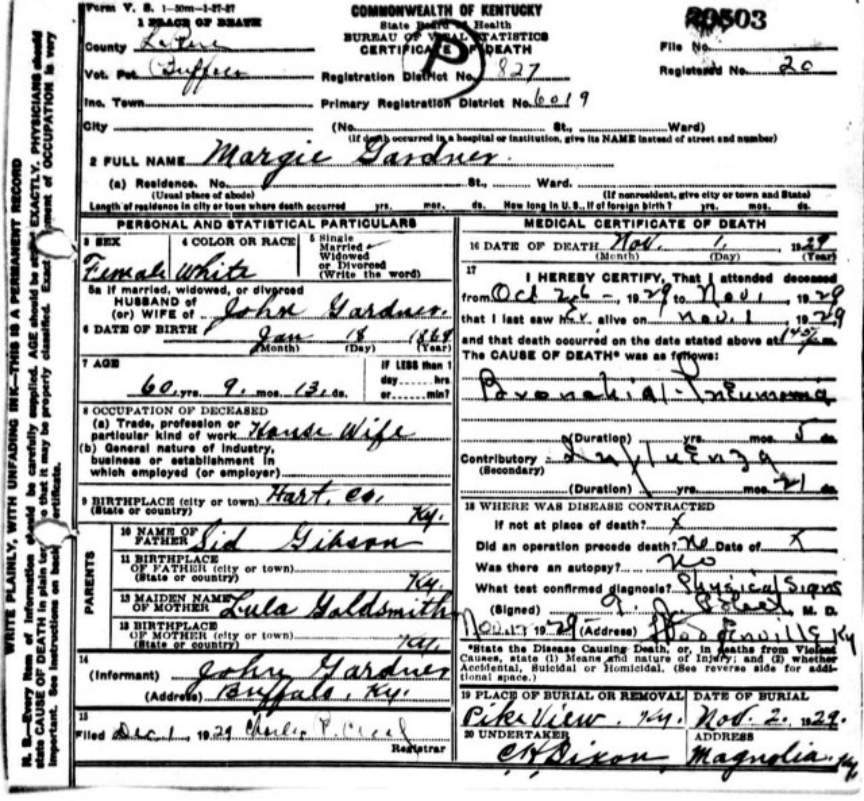 Form V. S. 1—50m—1-27-27
COMMONWEALTH OF KENTUCKY
State Board of Health
BUREAU OF VITAL STATISTICS
CERTIFICATE OF DEATH
P
20503
File No.
Registered No. 20
1 PLACE OF DEATH
County LaRue
Vot. Pct. Buffalo
Registration District No. 827
Inc. Town
Primary Registration District No. 6019
City (No. St., Ward)
(If death occurred in a hospital or institution, give its NAME instead of street and number)
2 FULL NAME Margie Gardner.
(a) Residence. No. St., Ward.
(Usual place of abode) (If nonresident, give city or town and State)
Length of residence in city or town where death occurred yrs. mos. ds. How long in U. S., if of foreign birth? yrs. mos. ds.
PERSONAL AND STATISTICAL PARTICULARS
3 SEX
Female
4 COLOR OR RACE
White
5 Single
Married
Widowed
or Divorced
(Write the word)
5a If married, widowed, or divorced
HUSBAND of
(or) WIFE of John Gardner.
6 DATE OF BIRTH Jan 18 1869
(Month) (Day) (Year)
7 AGE
60 yrs. 9 mos. 13 ds.
IF LESS than 1
day hrs
or min?
8 OCCUPATION OF DECEASED
(a) Trade, profession or
particular kind of work House Wife
(b) General nature of industry,
business or establishment in
which employed (or employer)
9 BIRTHPLACE (city or town) Hart. Co.
(State or country) Ky.
PARENTS
10 NAME OF
FATHER Sid Gibson
11 BIRTHPLACE
OF FATHER (city or town)
(State or country) Ky.
12 MAIDEN NAME
OF MOTHER Lula Goldsmith
13 BIRTHPLACE
OF MOTHER (city or town)
(State or country) Ky.
14
(Informant) John Gardner
(Address) Buffalo, Ky.
15
Filed Dec 1, 1929 Charles P. Creel
Registrar
MEDICAL CERTIFICATE OF DEATH
16 DATE OF DEATH Nov. 1, 1929
(Month) (Day) (Year)
17
I HEREBY CERTIFY, That I attended deceased
from Oct 26 - 1929 to Nov. 1, 1929
that I last saw her alive on Nov. 1 1929,
and that death occurred on the date stated above at 145 Pm
The CAUSE OF DEATH* was as follows:
Bronchial-Pneumonia
(Duration) yrs. mos. 5 ds
Contributory Influenza
(Secondary)
(Duration) yrs. mos. 21 ds
18 WHERE WAS DISEASE CONTRACTED
If not at place of death? X
Did an operation precede death? No Date of X
Was there an autopsy? No
What test confirmed diagnosis? Physical Signs
(Signed) M. D.
Nov. 1929 (Address) Hodgenville Ky
*State the Disease Causing Death, or, in deaths from Violent
Causes, state (1) Means and nature of Injury; and (2) whether
Accidental, Suicidal or Homicidal. (See reverse side for addi-
tional space.)
19 PLACE OF BURIAL OR REMOVAL
Pike View. Ky.
DATE OF BURIAL
Nov. 2. 1929.
20 UNDERTAKER
C H Dixon
ADDRESS
Magnolia. Ky
WRITE PLAINLY, WITH UNFADING INK—THIS IS A PERMANENT RECORD
N. B.—Every item of information should be carefully supplied. AGE should be stated EXACTLY. PHYSICIANS should
state CAUSE OF DEATH in plain terms, so that it may be properly classified. Exact statement of OCCUPATION is very
important. See instructions on back of certificate.